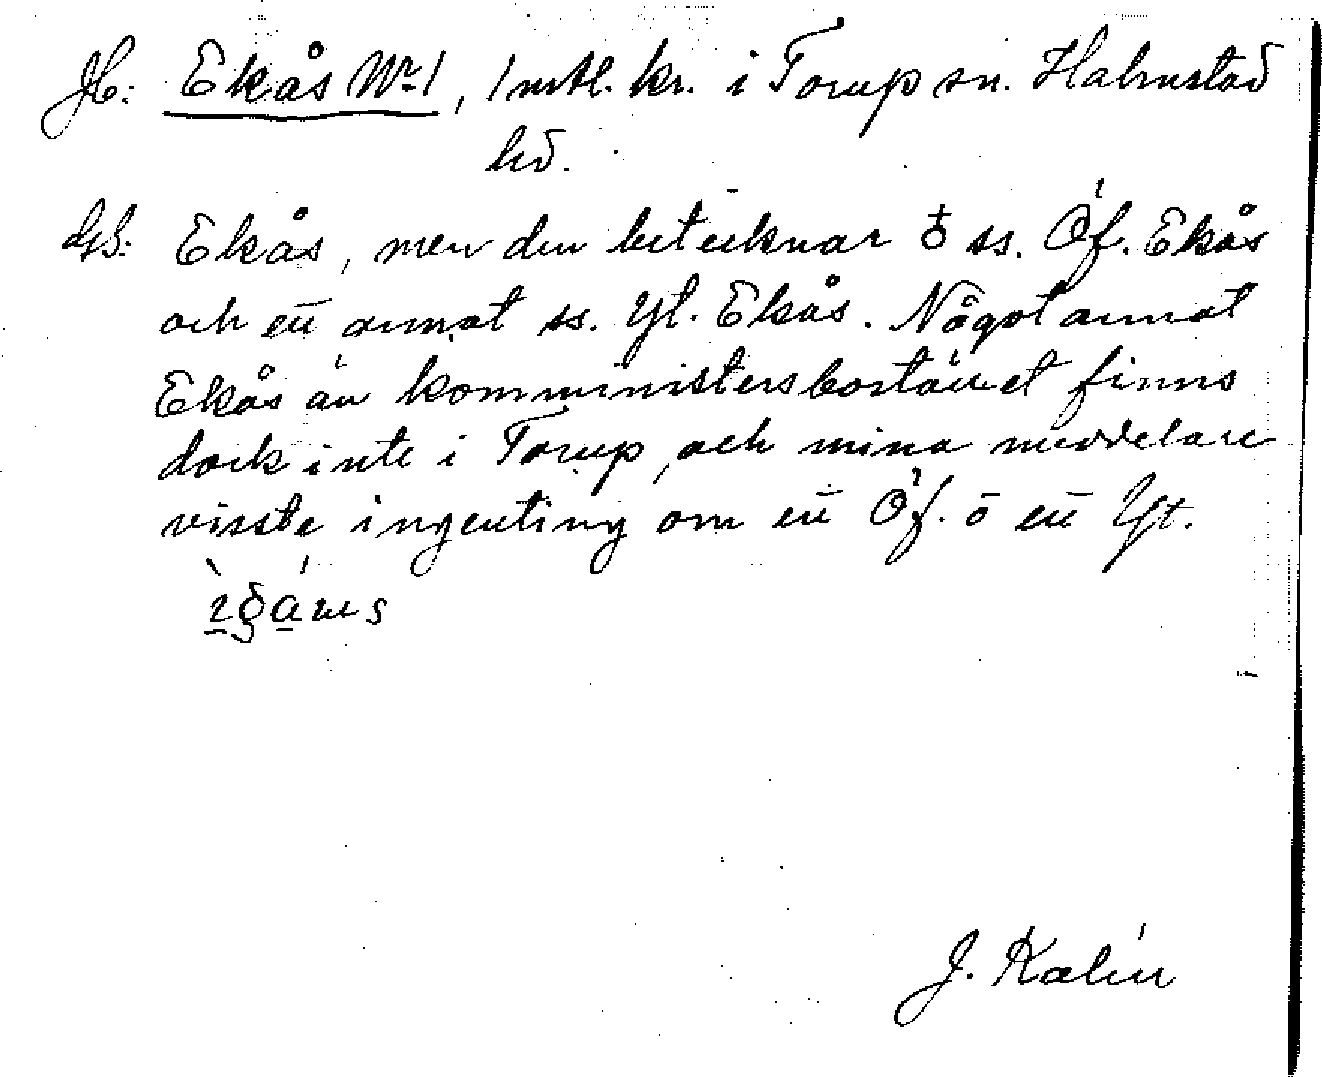 Jb: Ekås No 1, 1 mtl. kr. i Torup sn. Halmstad
hd.
GS: Ekås, men den betecknar ♁ ss. Öf. Ekås
och ett annat ss. Yt. Ekås. Något annat
Ekås än komministersbostället finns
dock inte i Torup, och mina meddelare
visste ingenting om ett Öf. o ett Yt.
J. Kalén